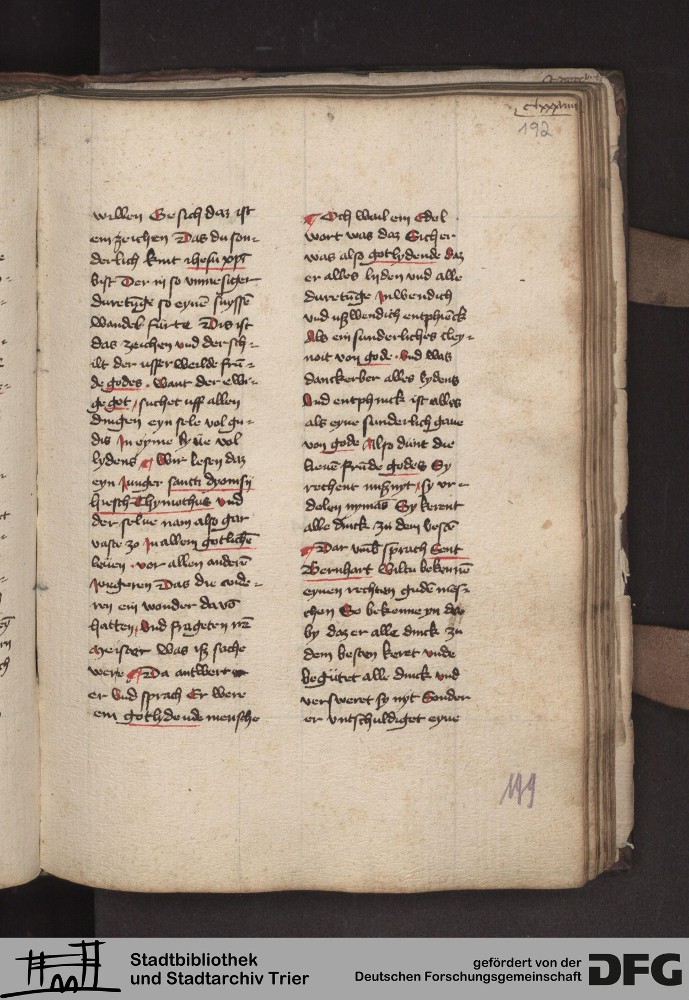 clxxxviiii
192
willen Besich daz ist
ein zeichen Das du son-
derlich kint ihesu xpi
bist Der in so vnmesiger
duretunge so eynē suyssē
wandel fürte Dis ist
das zeichen vnd der sch-
ilt der vsser weilde frü-
de godes . Want der ewi-
ge got / suchet vff allen
dingen eyn sele vol gn-
dis Jn eyme lyue vol
lydens ¶ Wir lesen daz
eyn Junger sancti dyonisy
hiesch Thymothus Vnd
der selue nam also gar
vaste zo Jn allem gotlichē
leuen . vor allen anderē
Jungeren Das die ande-
ren ein wonder dauō
hatten / Vnd frageten irē
Meister Was isz sache
were ¶ Da antwert
er Vnd sprach Er were
ein gotlydende mensche
¶ Och wail ein Edel
wort was daz Sicher
was also gotlydende daz
er alles lyden vnd alle
duretūge Jnwendich
vnd vszwendich entphinck
Als ein sunderliches cley-
noit von gode . Vnd was
danckerber alles lydens
Vnd entphinck ist alles
als eyne sunderlich gaue
von gode Also dūnt die
lieuē frūde godes Sy
rechent nihznyt / sy vr-
delen nymās Sy kerent
alle dinck zu dem bestē
¶ Dar vmb sprach Sent
Bernhart Wiltu bekennē
eynen rechten guden mēs-
chen So bekenne yn dar
by daz er alle dinck zu
dem besten keret vnde
begūtet alle dinck vnd
versweret sy nyt Sonder
er vntschuldiget eyne
199
Stadtbibliothek
und Stadtarchiv Trier
gefördert von der
Deutschen Forschungsgemeinschaft
DFG